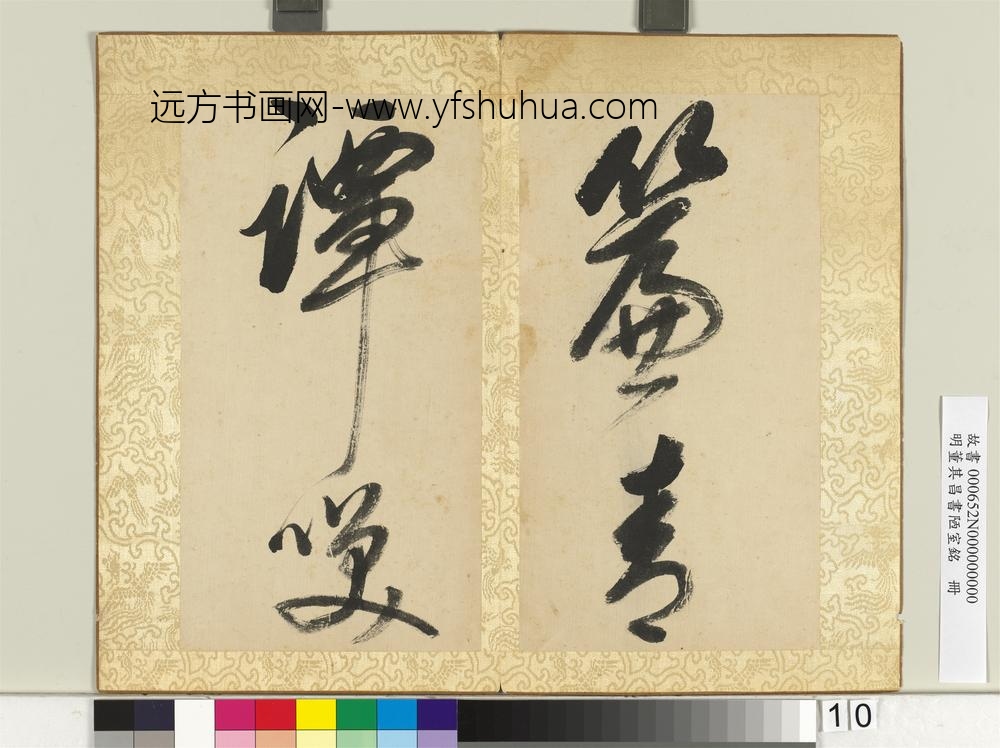 远方书画网-www.yfshuhua.com
簾青
譚笑
故書 000652N000000000
明董其昌書陋室銘 冊
10